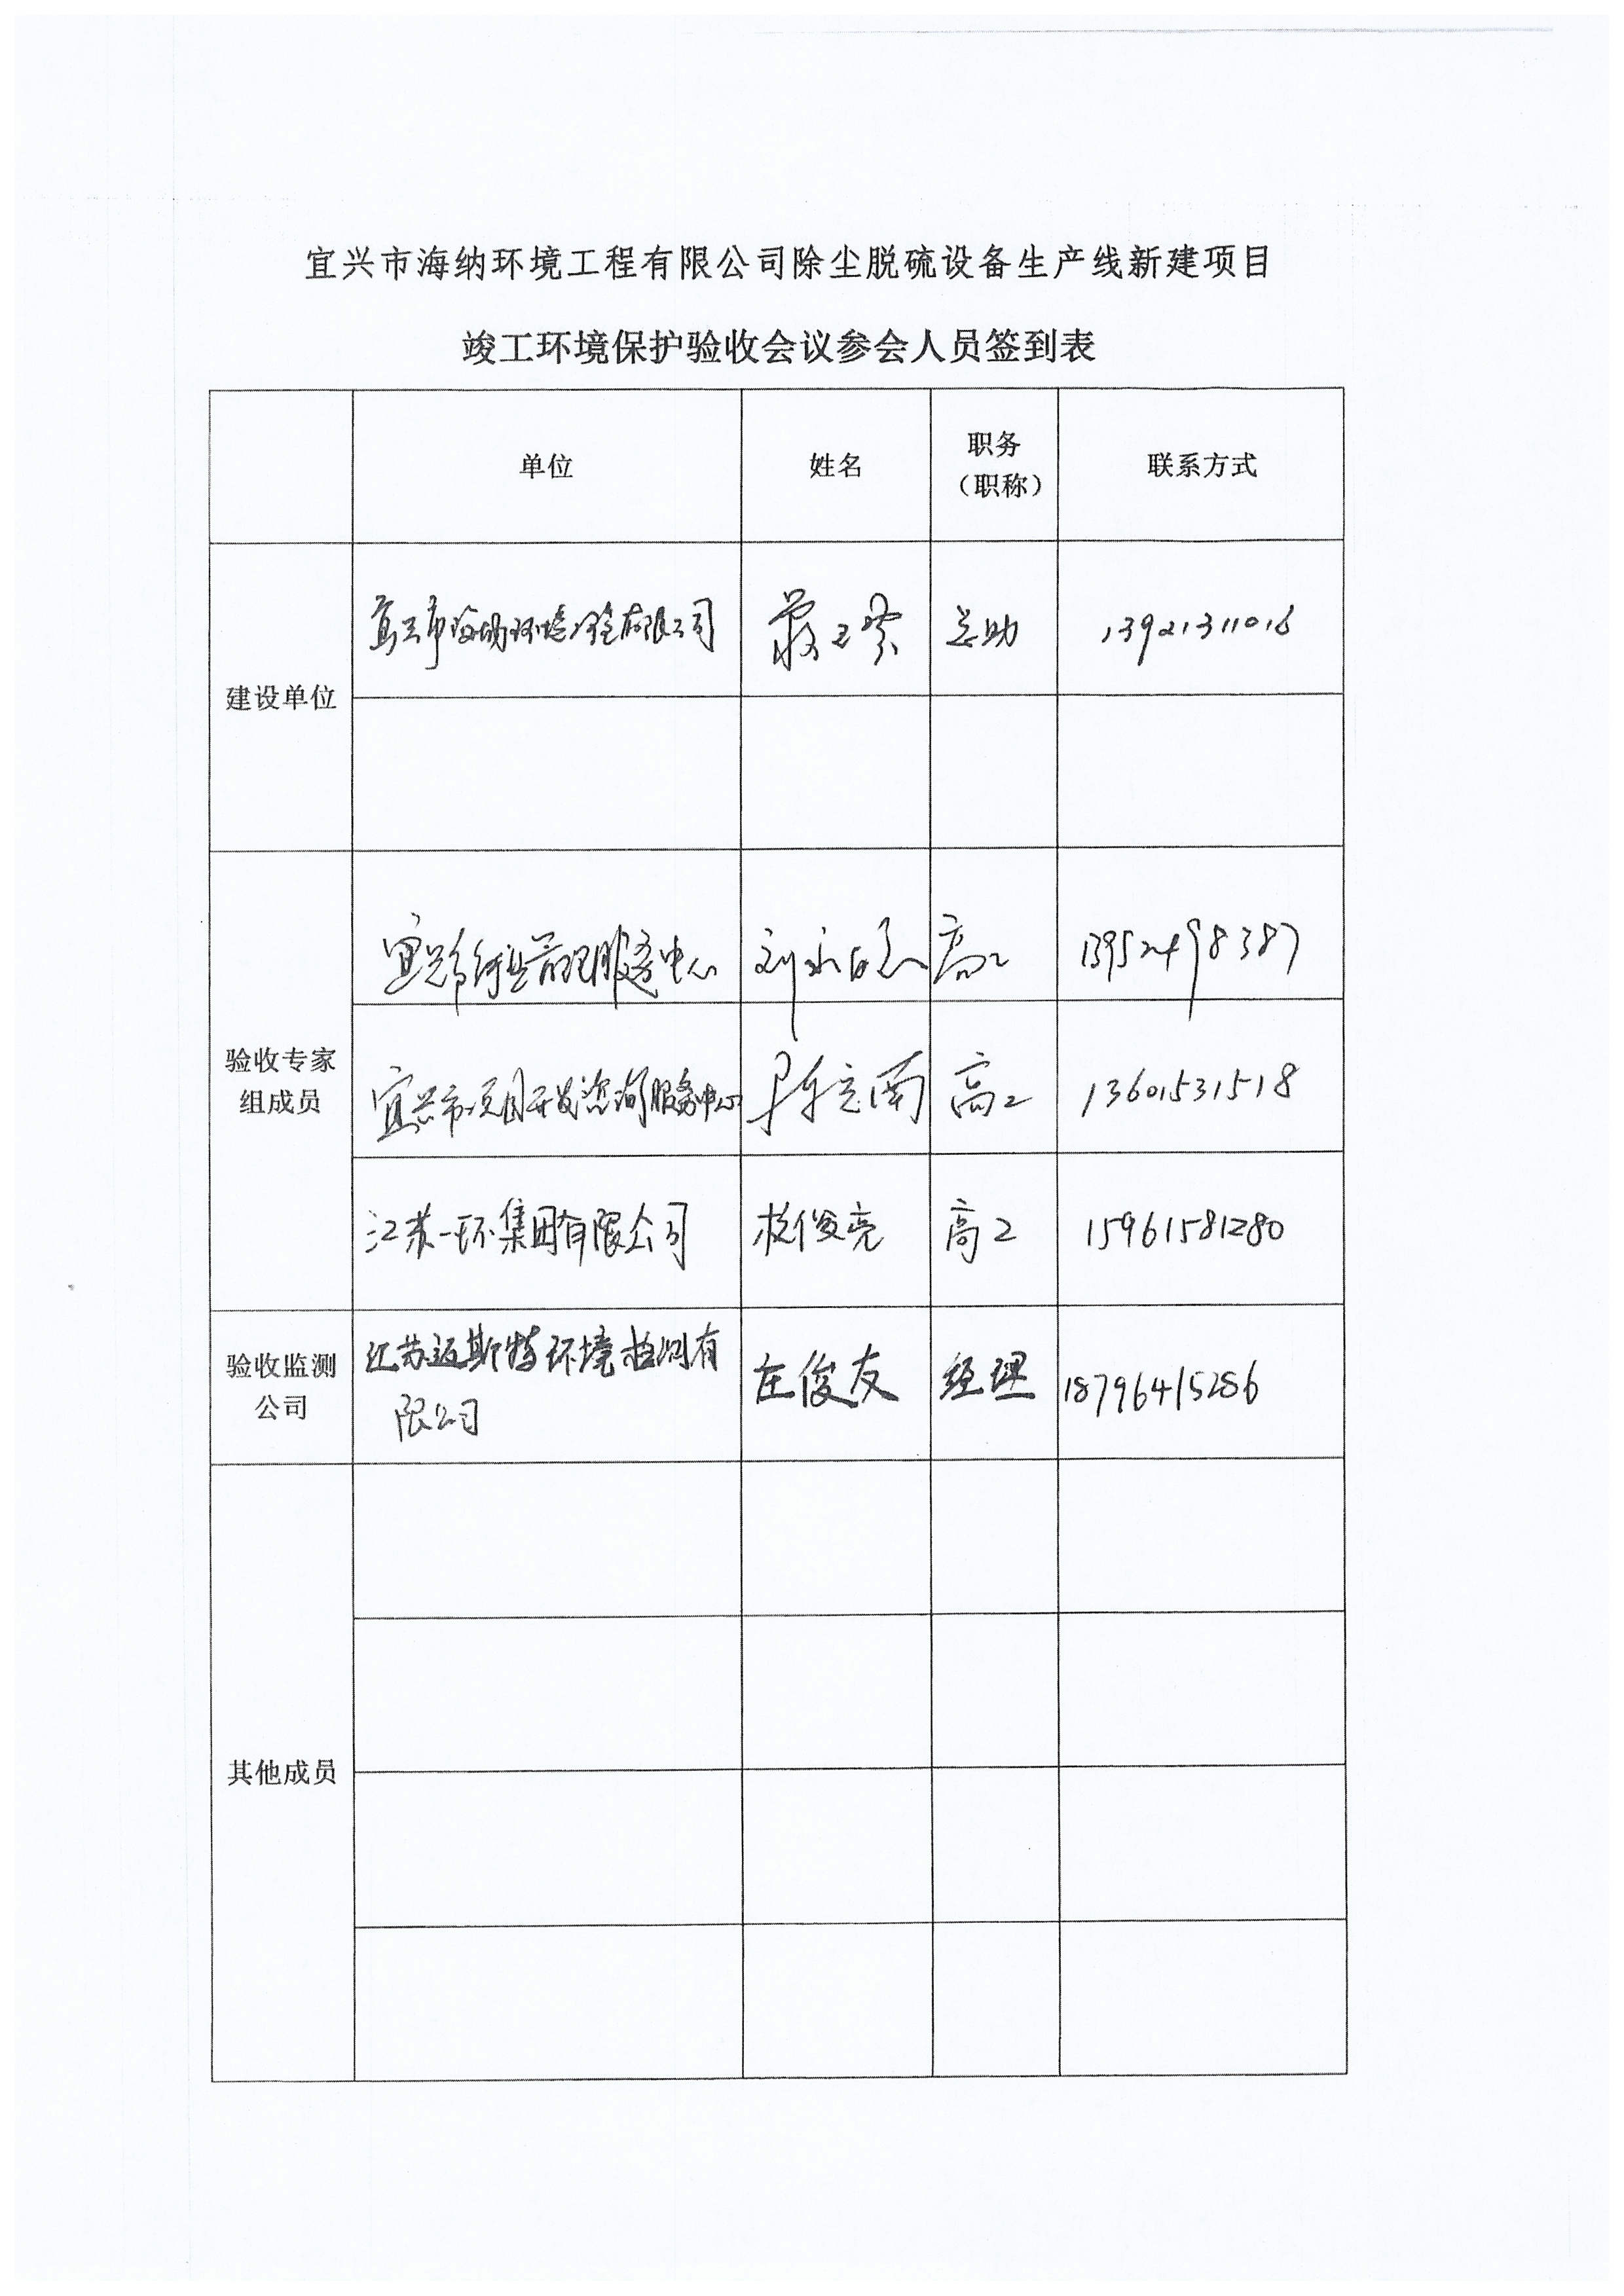 宜兴市海纳环境工程有限公司除尘脱硫设备生产线新建项目
竣工环境保护验收会议参会人员签到表
单位 姓名 职务（职称） 联系方式
建设单位
宜兴市海纳环境工程有限公司 总助 13921311016
验收专家组成员
宜兴市 管理服务中心 刘 高工 13952498387
宜兴市项目开发咨询服务中心 南 高工 13601531518
江苏一环集团有限公司 俊亮 高工 15961581280
验收监测公司
江苏迈斯特环境检测有
限公司
庄俊友 经理 18796415286
其他成员